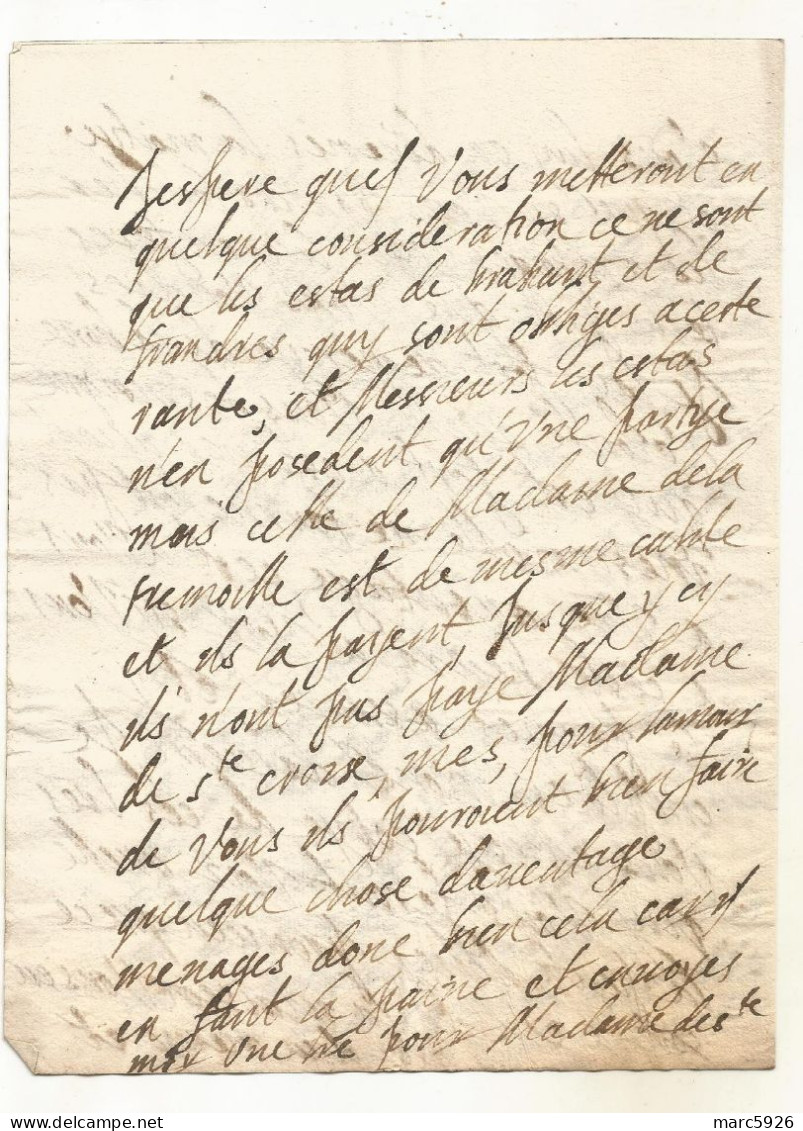 Jespere quel vous metteront en
quelque consideration ce ne sont
que les estas de brabant et de
frandres quy sont obliges a certe
rante, et Messieurs les estas
n'en posedent qu'une partye
mais celle de Madame de la
tremoille est de mesme
et ils la payent Jusque y cy
ils n'ont pas paye Madame
de ste croix, mes, pour lamour
de vous ils pouroient bien faire
quelque chose daventage
menages donc bien cela car yl
en faut la paine et envoyes
moy une pour Madame de ste
marc5926